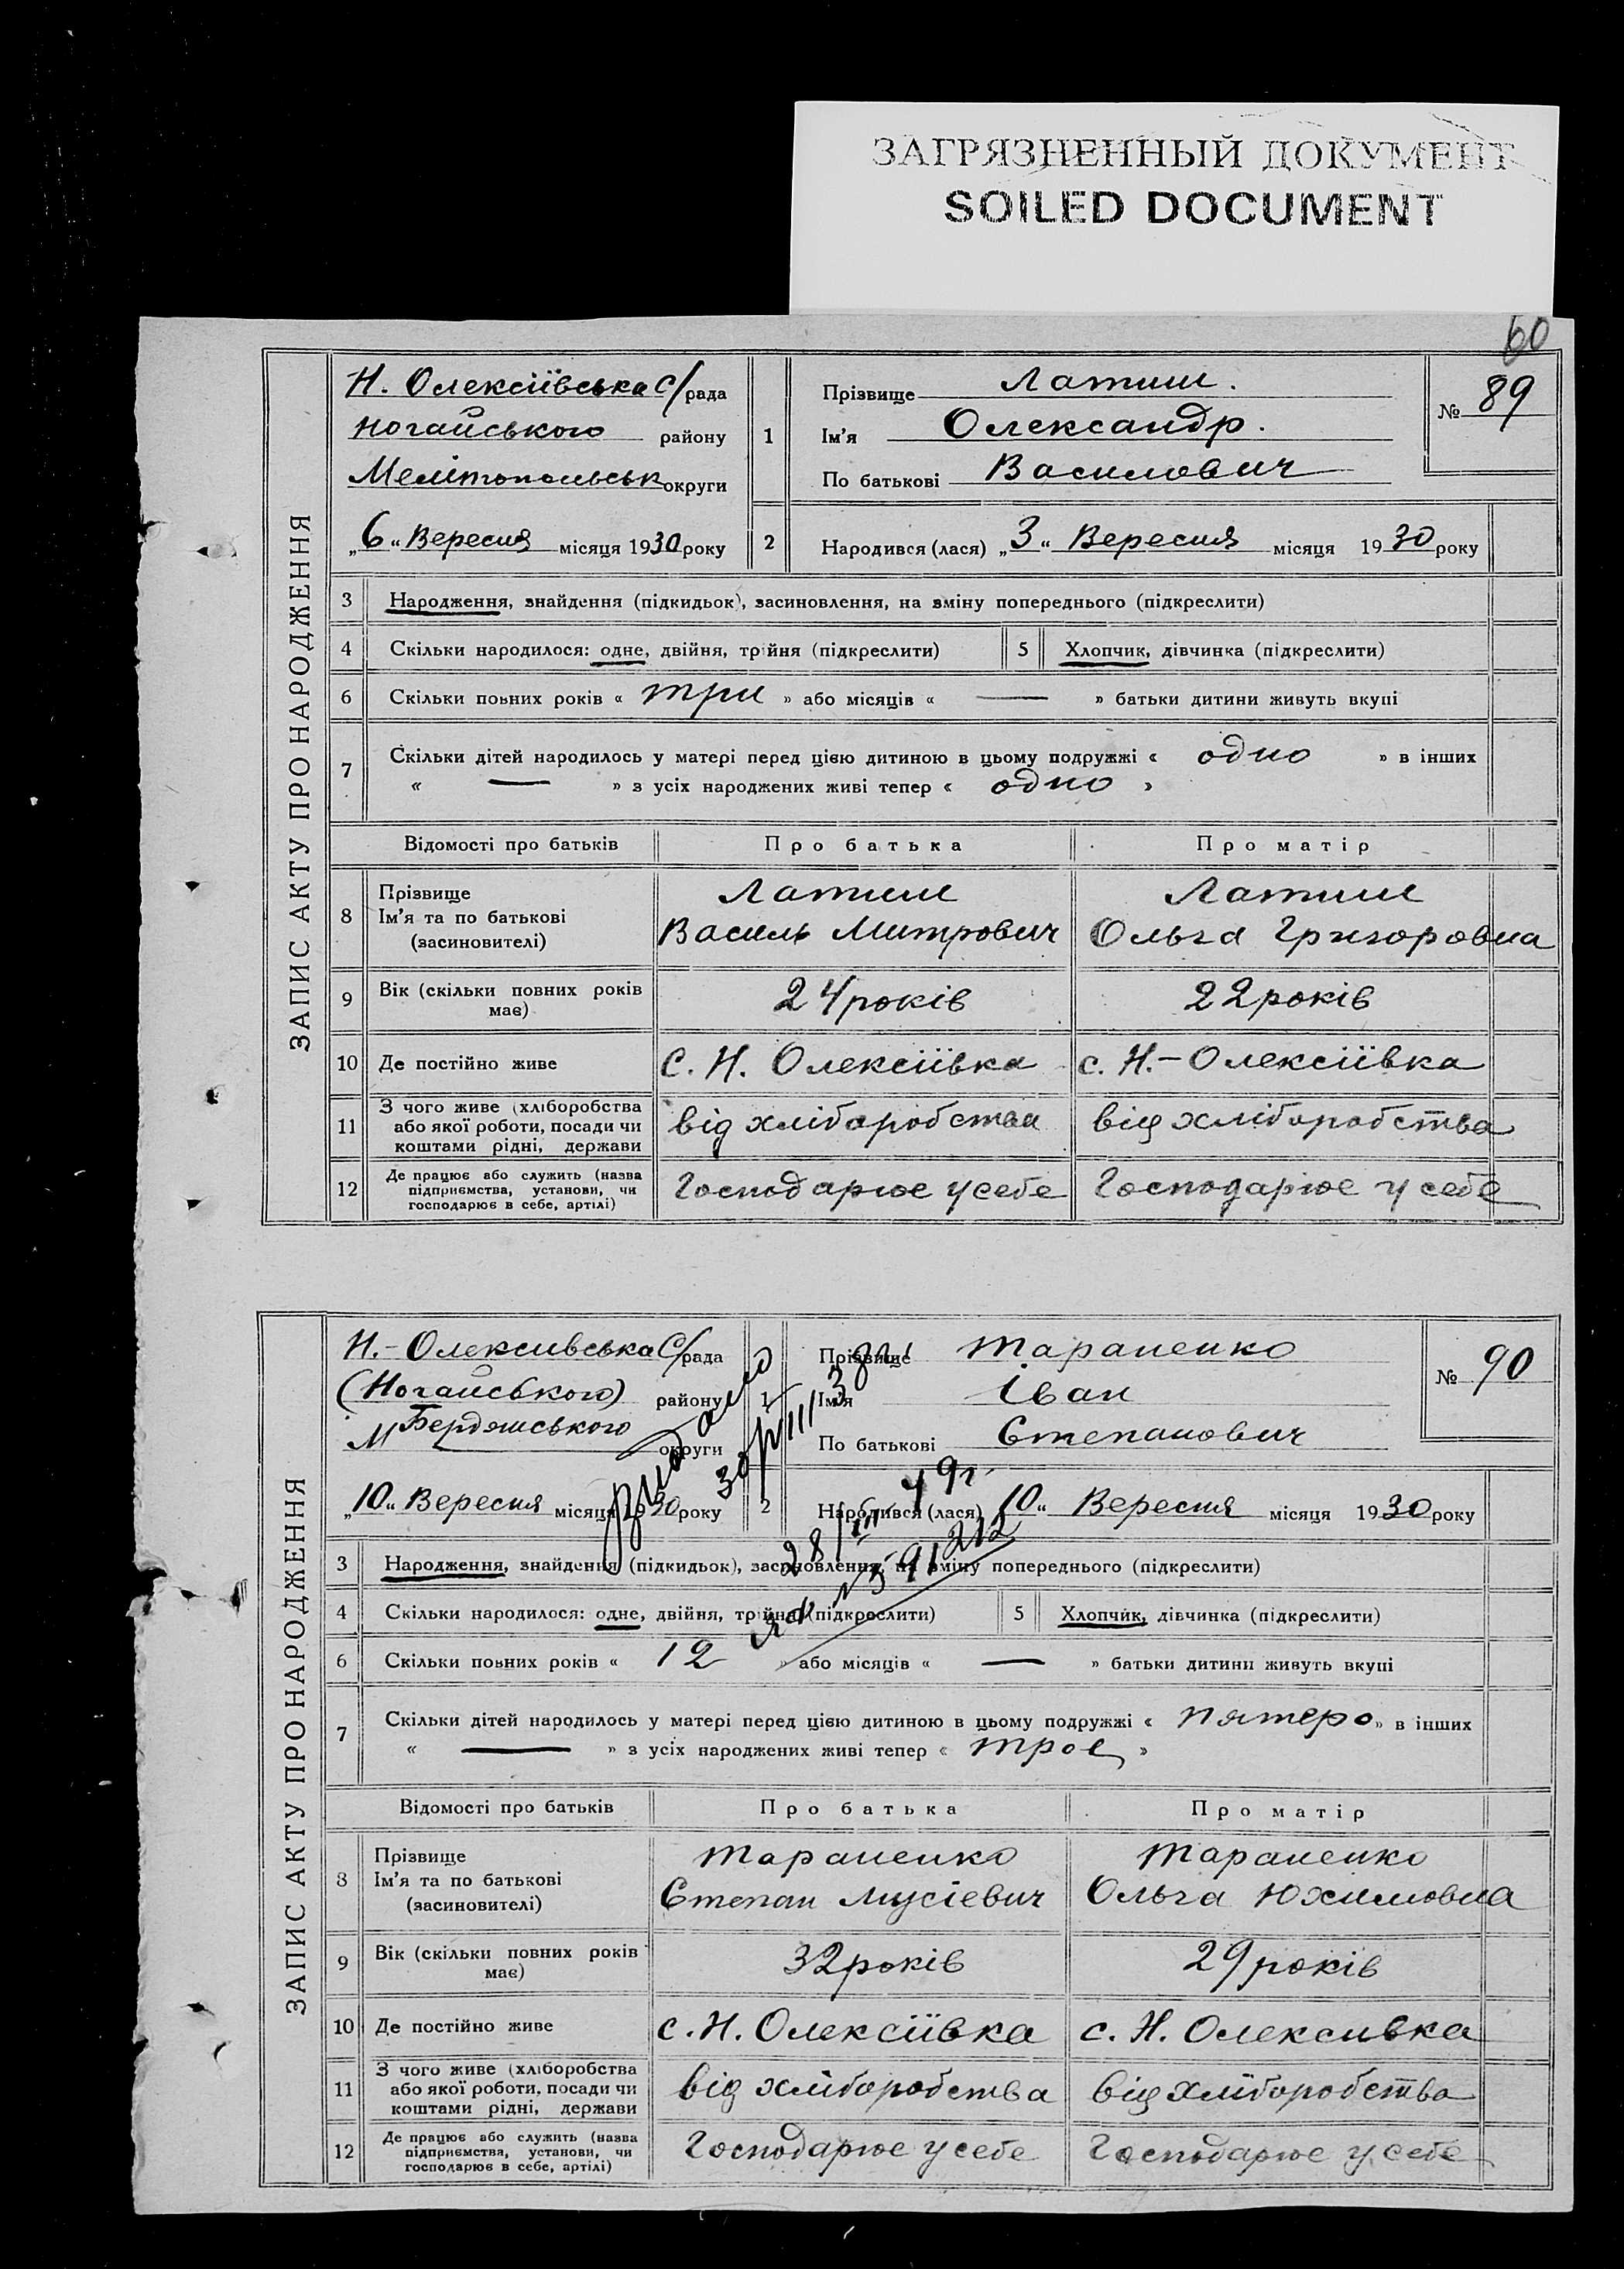 ЗАГРЯЗНЕННЫЙ ДОКУМЕНТ
SOILED DOCUMENT
60
ЗАПИС АКТУ ПРО НАРОДЖЕННЯ
Н. Олексіївська С/рада
Ногайського району
Мелітопольськ округи
„6“ Вересня місяця 1930 року
1 Прізвище Латиш.
Ім’я Олександр.
По батькові Василович
№ 89
2 Народився (лася) „3“ Вересня місяця 1930 року
3 Народження, знайдення (підкидьок), засиновлення, на зміну попереднього (підкреслити)
4 Скільки народилося: одне, двійня, трійня (підкреслити) 5 Хлопчик, дівчинка (підкреслити)
6 Скільки повних років « три » або місяців « — » батьки дитини живуть вкупі
7 Скільки дітей народилось у матері перед цією дитиною в цьому подружжі « одно » в інших
« — » з усіх народжених живі тепер « одно »
Відомості про батьків Про батька Про матір
8 Прізвище Латиш Латиш
Ім’я та по батькові Василь Митрович Ольга Григоровна
(засиновителі)
9 Вік (скільки повних років має) 24 років 22 років
10 Де постійно живе с. Н. Олексіївка с. Н.-Олексіївка
11 З чого живе (хліборобства
або якої роботи, посади чи від хліборобства від хліборобства
коштами рідні, держави
12 Де працює або служить (назва
підприємства, установи, чи Господарює у себе Господарює у себе
господарює в себе, артілі)
ЗАПИС АКТУ ПРО НАРОДЖЕННЯ
Н.-Олексиівська С/рада
(Ногайського) району
М Бердянського округи
„10“ Вересня місяця 1930 року
1 Прізвище Тараненко
Ім’я Іван
По батькові Степанович
№ 90
2 Народився (лася) 10“ Вересня місяця 1930 року
3 Народження, знайдення (підкидьок), засиновлення, на зміну попереднього (підкреслити)
4 Скільки народилося: одне, двійня, трійня (підкреслити) 5 Хлопчик, дівчинка (підкреслити)
6 Скільки повних років « 12 » або місяців « — » батьки дитини живуть вкупі
7 Скільки дітей народилось у матері перед цією дитиною в цьому подружжі « пятеро » в інших
« — » з усіх народжених живі тепер « троє »
Відомості про батьків Про батька Про матір
8 Прізвище Тараненко Тараненко
Ім’я та по батькові Степан Мусієвич Ольга Юхимовна
(засиновителі)
9 Вік (скільки повних років має) 32 років 29 років
10 Де постійно живе с. Н. Олексіївка с. Н. Олексиівка
11 З чого живе (хліборобства
або якої роботи, посади чи від хліборобства від хліборобства
коштами рідні, держави
12 Де працює або служить (назва
підприємства, установи, чи Господарює у себе Господарює у себе
господарює в себе, артілі)